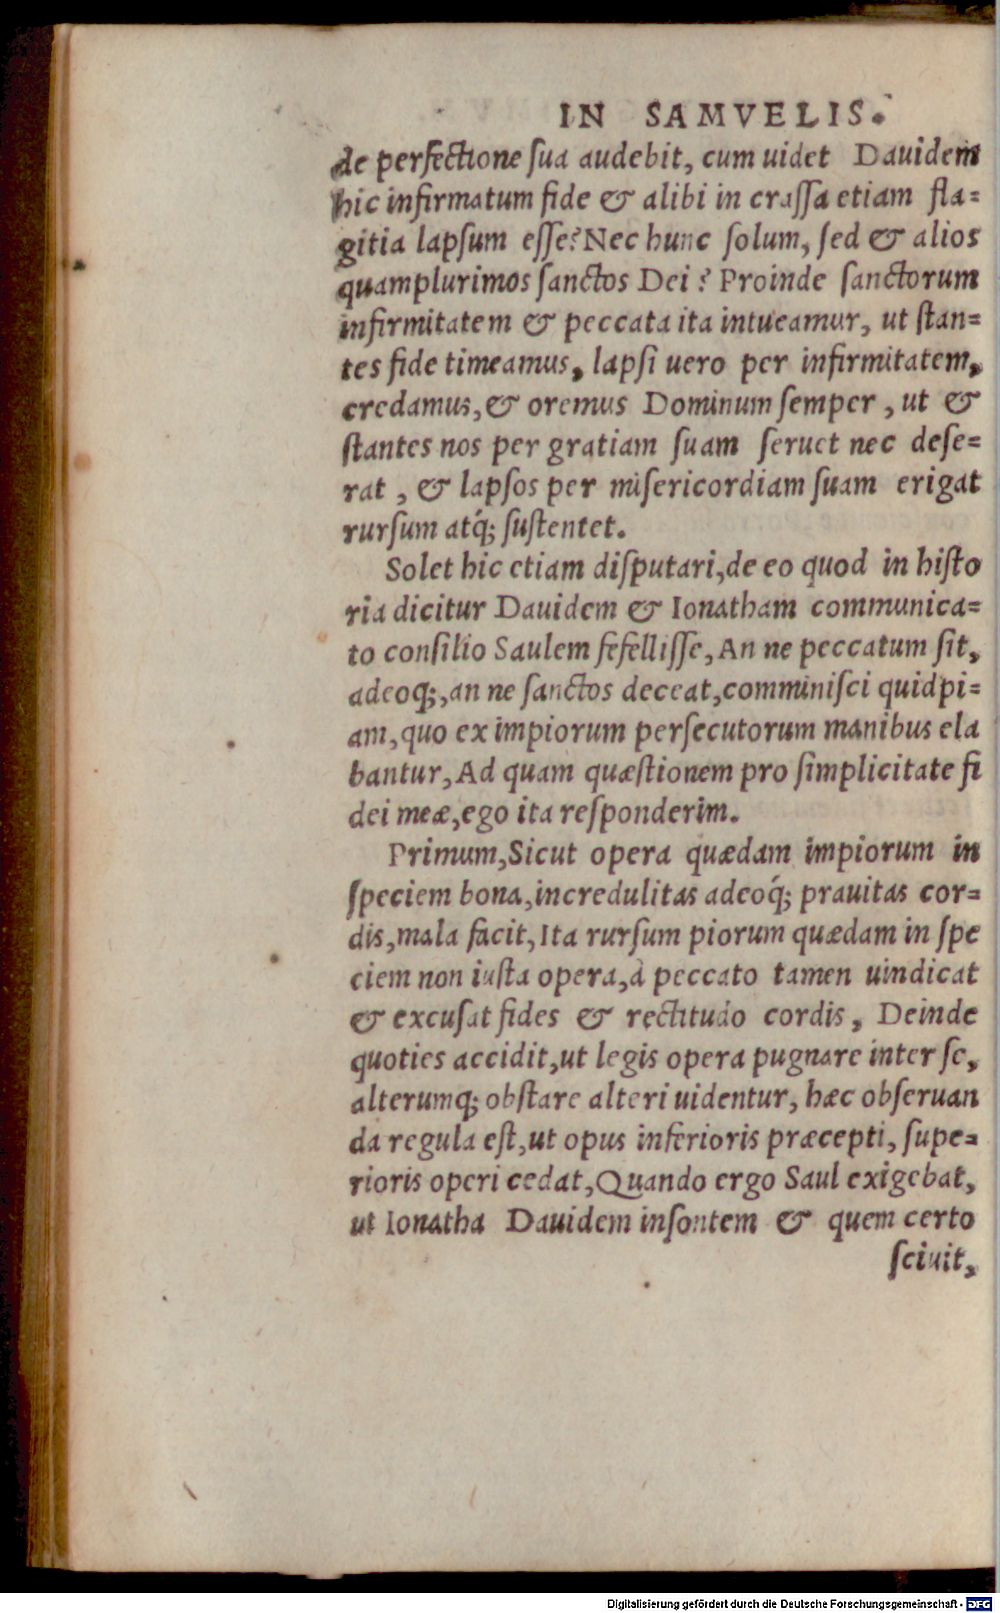 IN SAMVELIS.
de perfectione ſua audebit, cum uidet Dauidem
hic infirmatum fide & alibi in craſſa etiam fla=
gitia lapſum eſſe? Nec hunc ſolum, ſed & alios
quamplurimos ſanctos Dei? Proinde ſanctorum
infirmitatem & peccata ita intueamur, ut ſtan=
tes fide timeamus, lapſi uero per infirmitatem,
credamus, & oremus Dominum ſemper, ut &
ſtantes nos per gratiam ſuam ſeruet nec deſe=
rat, & lapſos per miſericordiam ſuam erigat
rurſum atq́; ſuſtentet.
Solet hic etiam diſputari, de eo quod in hiſto
ria dicitur Dauidem & Ionatham communica=
to conſilio Saulem fefelliſſe, An ne peccatum ſit,
adeoq́;, an ne ſanctos deceat, comminiſci quidpi=
am, quo ex impiorum perſecutorum manibus ela
bantur, Ad quam quæſtionem pro ſimplicitate fi
dei meæ, ego ita reſponderim.
Primum, Sicut opera quædam impiorum in
ſpeciem bona, incredulitas adeoq́; prauitas cor=
dis, mala facit, Ita rurſum piorum quædam in ſpe
ciem non iuſta opera, à peccato tamen uindicat
& excuſat fides & rectitudo cordis, Deinde
quoties accidit, ut legis opera pugnare inter ſe,
alterumq́; obſtare alteri uidentur, hæc obſeruan
da regula eſt, ut opus inferioris præcepti, ſupe=
rioris operi cedat, Quando ergo Saul exigebat,
ut Ionatha Dauidem inſontem & quem certo
ſciuit,
Digitalisierung gefördert durch die Deutsche Forschungsgemeinschaft - DFG